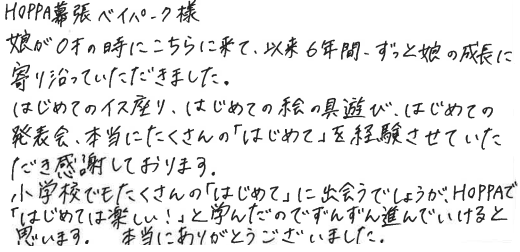 HOPPA幕張ベイパーク様
娘が0才の時にこちらに来て、以来6年間、ずっと娘の成長に
寄り沿っていただきました。
はじめてのイス座り、はじめての絵の具遊び、はじめての
発表会、本当にたくさんの「はじめて」を経験させていた
だき感謝しております。
小学校でもたくさんの「はじめて」に出会うでしょうが、HOPPAで
「はじめては楽しい!」と学んだのでずんずん進んでいけると
思います。 本当にありがとうございました。